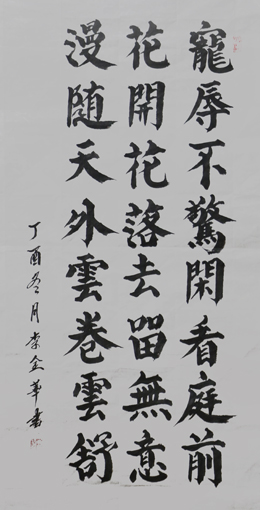 寵辱不驚閑看庭前
花開花落去留無意
漫随天外雲卷雲舒
丁酉冬月李金華書